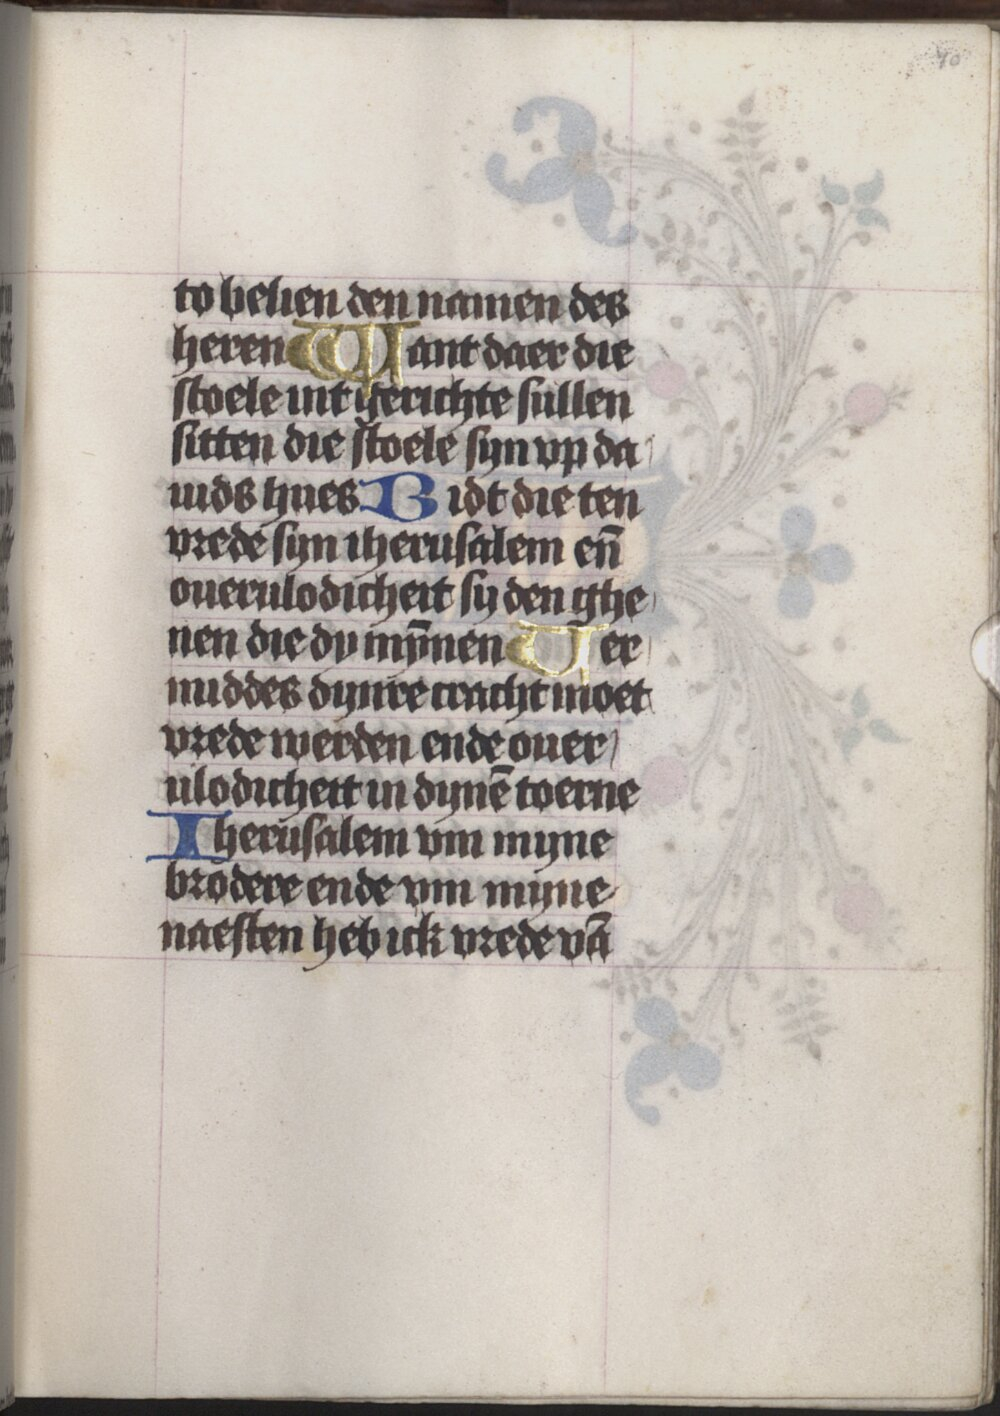 70
to belien den namen des
heren Want daer die
stoele int gerichte sullen
sitten die stoele syn vp da
uids hues Bidt die ten
vrede syn iherusalem en̄
oueruloidicheit sy den ghe
nen die dy mȳnen Uer
middes dynre cracht moet
vrede werden ende ouer
ulodicheit in dynē toerne
Iherusalem vm myne
brodere ende vm myne
naesten heb ick vrede vā